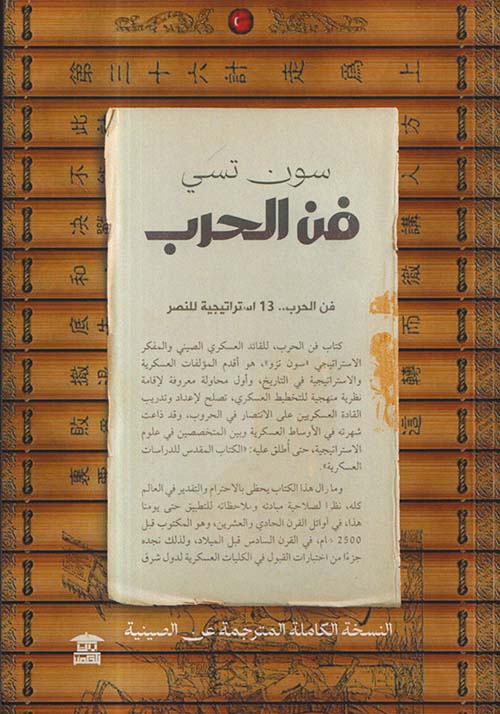 第三十六計 走爲上
此 方
不 人
決 講
和 徹
底 而
撤 轉
敗 這
裏
سون تسي
فن الحرب
فن الحرب.. 13 استراتيجية للنصر
كتاب فن الحرب، للقائد العسكري الصيني والمفكر
الاستراتيجي «سون تزو»، هو أقدم المؤلفات العسكرية
والاستراتيجية في التاريخ، وأول محاولة معروفة لإقامة
نظرية منهجية للتخطيط العسكري، تصلح لإعداد وتدريب
القادة العسكريين على الانتصار في الحروب، وقد ذاعت
شهرته في الأوساط العسكرية وبين المتخصصين في علوم
الاستراتيجية، حتى أُطلق عليه: «الكتاب المقدس للدراسات
العسكرية».
وما زال هذا الكتاب يحظى بالاحترام والتقدير في العالم
كله، نظرًا لصلاحية مبادئه وملاحظاته للتطبيق حتى يومنا
هذا، في أوائل القرن الحادي والعشرين، وهو المكتوب قبل
2500 عام، في القرن السادس قبل الميلاد، ولذلك نجده
جزءًا من اختبارات القبول في الكليات العسكرية لدول شرق
النسخة الكاملة المترجمة عن الصينية